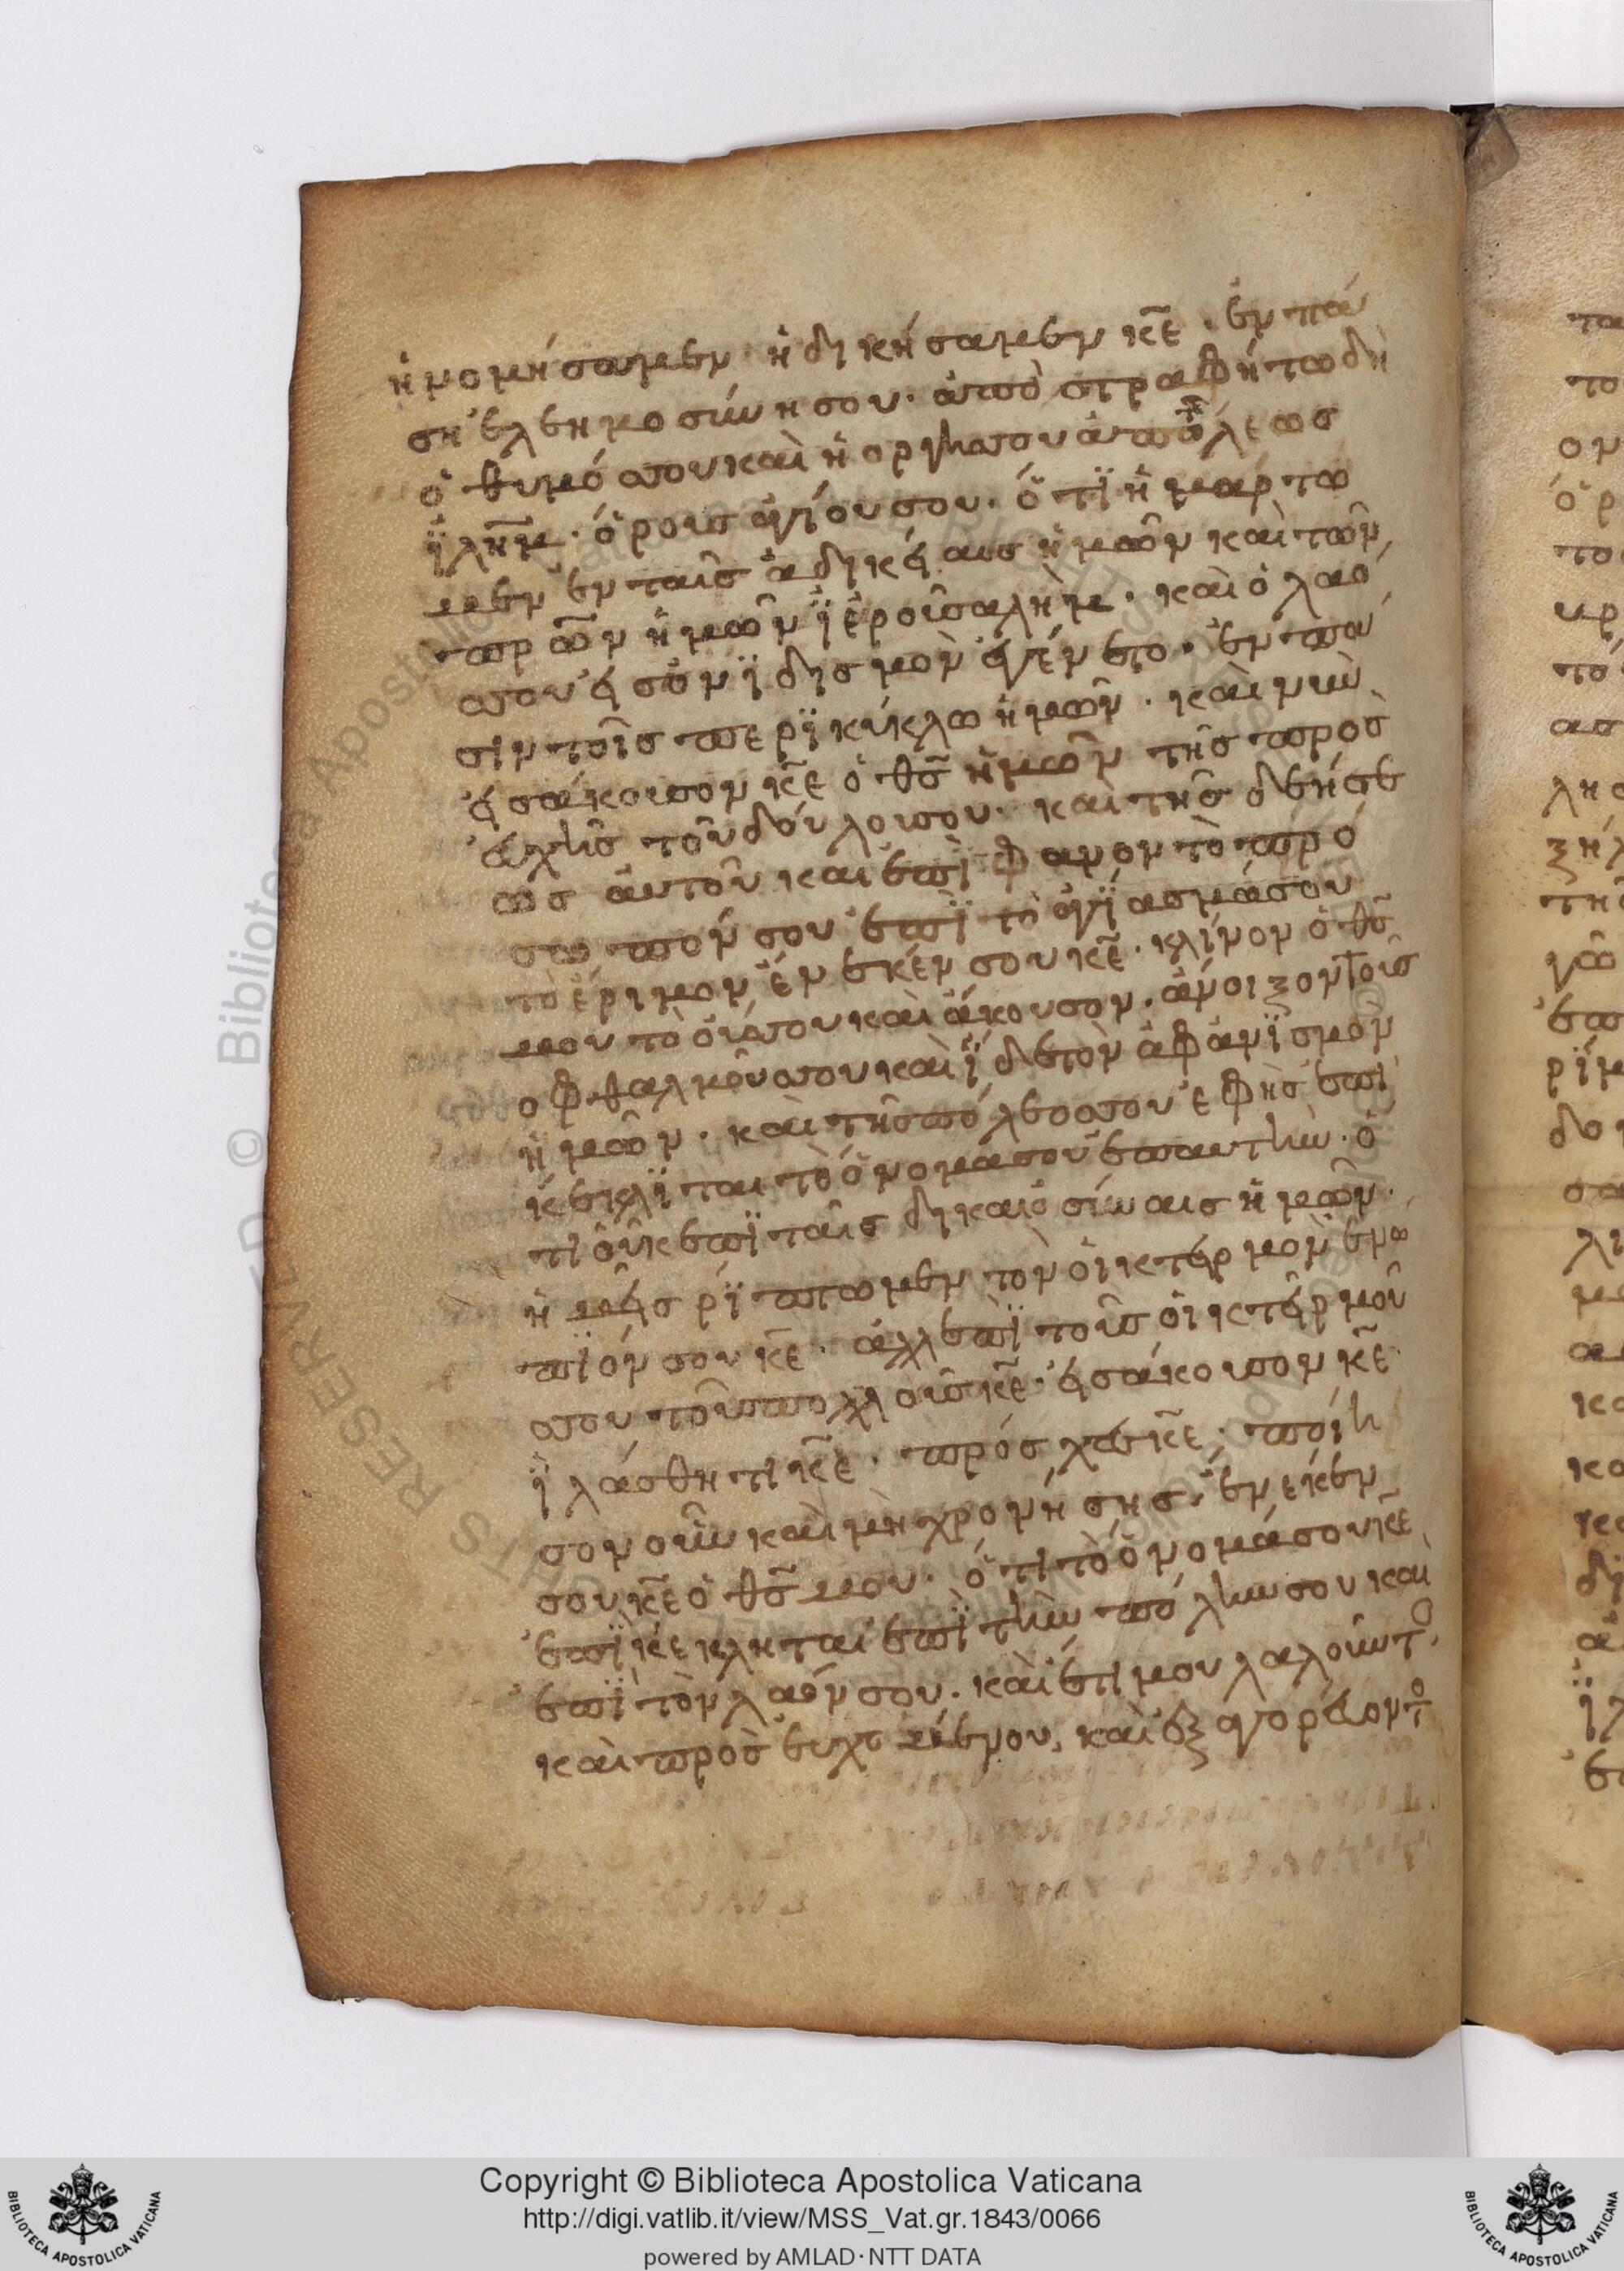 ἠνομήσαμεν· ἠδικήσαμεν κ̅ε̅· ἐν πά
ση ἐλεημοσύνη σου· ἀποστραφήτω δὴ
ὁ θυμόσσου καὶ ἡ ὀργήσου ἀπὸ πόλεως
ϊλη̅μ̅· ὄρους ἁγίου σου· ὅτϊ ἡμάρτω
μεν ἐν ταῖς ἀδικείαις ἡμῶν καὶ τῶν
πρῶν ἡμῶν ϊἐρουσαλὴμ· καὶ ὁ λαό
σσου εἰσ ὀνϊδισμὸν ἐγένετο· ἐν πᾶ
σιν τοῖς περϊκύκλω ἡμῶν· καὶ νῦν
εἰσάκουσον κ̅ε̅ ὁ θ̅ς̅ ἡμῶν τῆς προσ
ευχῆς τοῦ δούλουσου· καὶ τῆς δεήσε
ως αὐτοῦ καὶ ἐπὶφανον τὸ πρό
σωπόν σου ἐπϊ τὸ ἁγίασμάσου
τὸ ἔριμον ἕνεκέν σου κ̅ε̅· κλίνον ὁ θ̅ς̅
μου τὸ οὖσσου καὶ ἄκουσον· ἄνοιξον τοὺς
ὀφθαλμούσσου καὶ ϊδε τὸν ἀφανϊσμὸν
ἡμῶν· καὶ τῆσπόλεοσσου ἐφῆς ἐπὶ
κέκλϊται τὸ ὄνομάσου ἐπαυτήν· ὅ
τι οὐκ ἐπϊ ταῖς δικαιοσύναις ἡμῶν·
ἡμεῖς ρϊπτωμεν τὸν οἰκτειρμὸν ἐνώ
πϊόν σου κ̅ε̅· ἀλλ ἐπϊ τοὺς οἰκτειρμού
σσου τοὺσπολλοὺς κ̅ε̅· εἰσάκουσον κ̅ε̅·
ϊλάσθητι κ̅ε̅· πρόσχες κ̅ε̅· ποίη
σον οὖν καὶ μὴ χρονήσης· ἕνεκέν
σου κ̅ε̅ ὁ θ̅ς̅ μου· ὅτι τὸ ὄνομάσου κ̅ε̅
ἐπϊκέκληται ἐπϊ τὴν πόλην σου καὶ
ἐπϊ τὸν λαόν σου· καὶ ἔτι μου λαλοῦντο
καὶ προσευχομένου, καὶ ἐξαγορεύοντο
Copyright © Biblioteca Apostolica Vaticana
http://digi.vatlib.it/view/MSS_Vat.gr.1843/0066
powered by AMLAD·NTT DATA